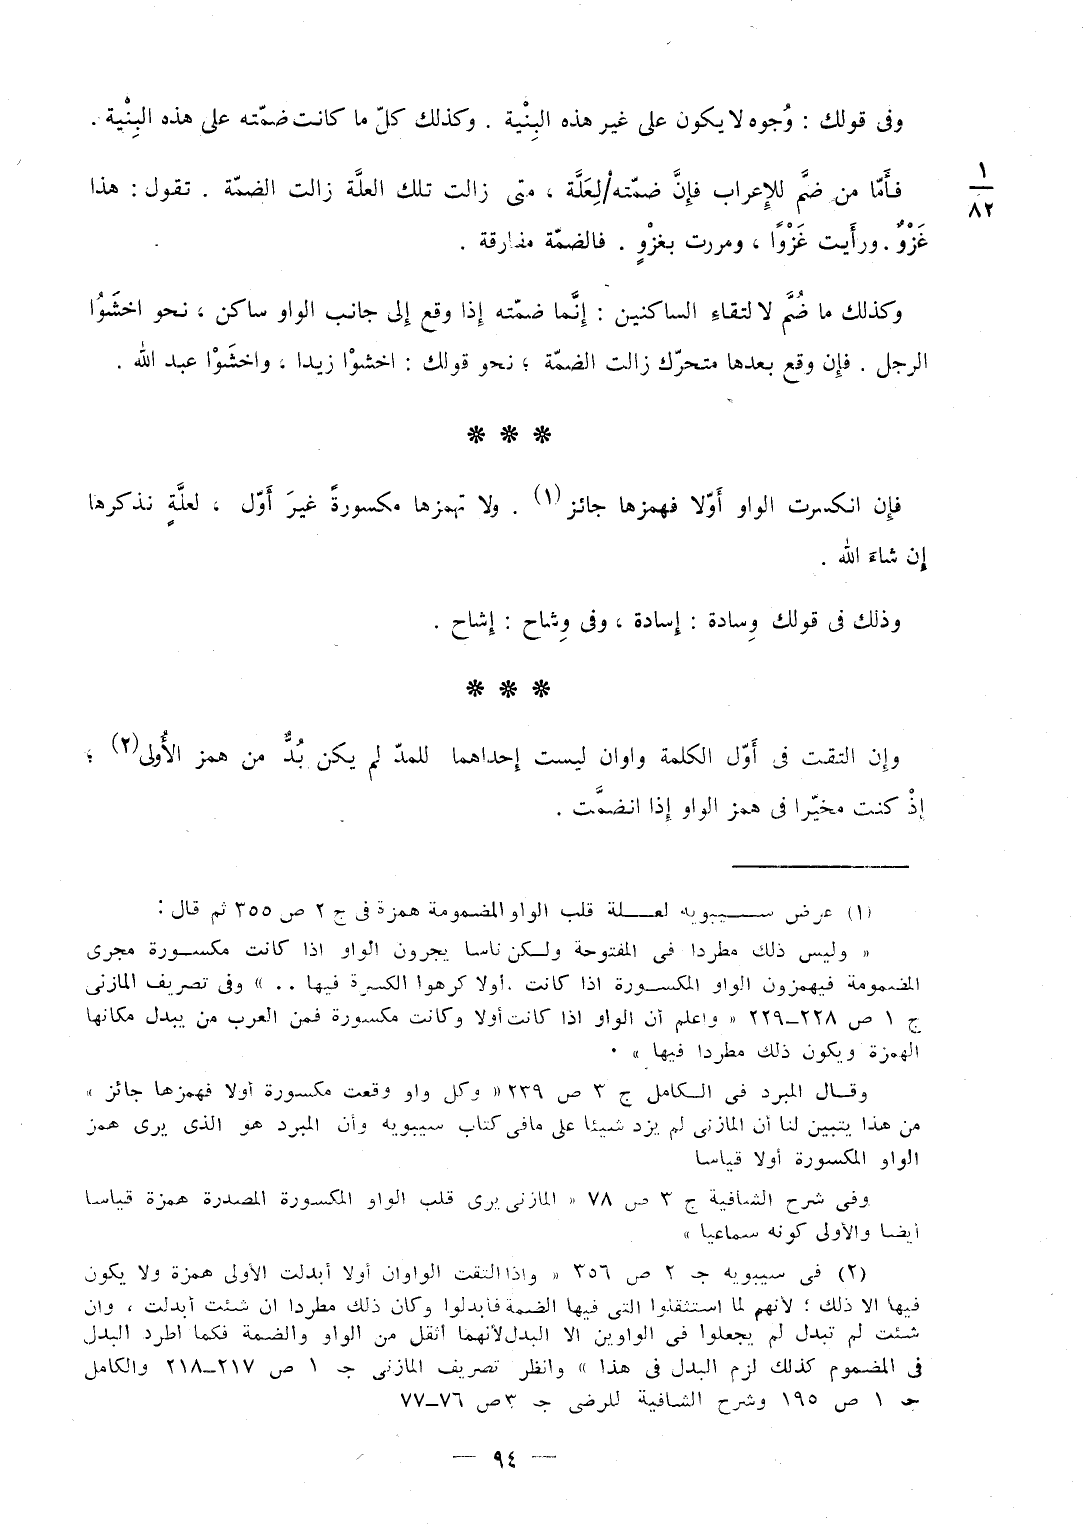 وفى قولك : وُجوه لا يكون على غير هذه البِنْية . وكذلك كلّ ما كانت ضمّته على هذه البِنْية .
١
٨٢
فأَمّا من ضمَّ للإعراب فإنَّ ضمّته/لِعَلَّة ، متى زالت تلك العلَّة زالت الضمّة . تقول : هذا
غَزْوٌ . ورأَيت غَزْوًا ، ومررت بغزْوٍ . فالضمّة مفارقة .
وكذلك ما ضُمَّ لالتقاءِ الساكنين : إنَّما ضمّته إذا وقع إلى جانب الواو ساكن ، نحو اخشَوُا
الرجل . فإن وقع بعدها متحرّك زالت الضمّة ؛ نحو قولك : اخشوْا زيدا ، واخشَوْا عبد الله .
* * *
فإن انكسرت الواو أَوّلا فهمزها جائز (١) . ولا تهمزها مكسورةً غيرَ أَوّل ، لعلَّةٍ نذكرها
إن شاءَ الله .
وذلك فى قولك وِسادة : إسادة ، وفى وِشاح : إشاح .
* * *
وإن التقت فى أَوّل الكلمة واوان ليست إحداهما للمدّ لم يكن بُدٌّ من همز الأُولى(٢) ؛
إذْ كنت مخيّرا فى همز الواو إذا انضمَّت .
(١) عرض سيبويه لعلة قلب الواو المضمومة همزة فى ج ٢ ص ٣٥٥ ثم قال :
« وليس ذلك مطردا فى المفتوحة ولكن ناسا يجرون الواو اذا كانت مكسورة مجرى
المضمومة فيهمزون الواو المكسورة اذا كانت أولا كرهوا الكسرة فيها . . » وفى تصريف المازنى
ج ١ ص ٢٢٨ـ٢٢٩ « واعلم أن الواو اذا كانت أولا وكانت مكسورة فمن العرب من يبدل مكانها
الهمزة ويكون ذلك مطردا فيها » .
وقال المبرد فى الكامل ج ٣ ص ٢٣٩ « وكل واو وقعت مكسورة أولا فهمزها جائز »
من هذا يتبين لنا أن المازنى لم يزد شيئا على مافى كتاب سيبويه وأن المبرد هو الذى يرى همز
الواو المكسورة أولا قياسا
وفى شرح الشافية ج ٣ ص ٧٨ « المازنى يرى قلب الواو المكسورة المصدرة همزة قياسا
أيضا والأولى كونه سماعيا »
(٢) فى سيبويه جـ ٢ ص ٣٥٦ « واذا التقت الواوان أولا أبدلت الأولى همزة ولا يكون
فيها الا ذلك ؛ لأنهم لما استثقلوا التى فيها الضمة فأبدلوا وكان ذلك مطردا ان شئت أبدلت ، وان
شئت لم تبدل لم يجعلوا فى الواوين الا البدل لأنهما أثقل من الواو والضمة فكما اطرد البدل
فى المضموم كذلك لزم البدل فى هذا » وانظر تصريف المازنى جـ ١ ص ٢١٧ـ٢١٨ والكامل
جـ ١ ص ١٩٥ وشرح الشافية للرضى جـ ٣ ص ٧٦ـ٧٧
— ٩٤ —